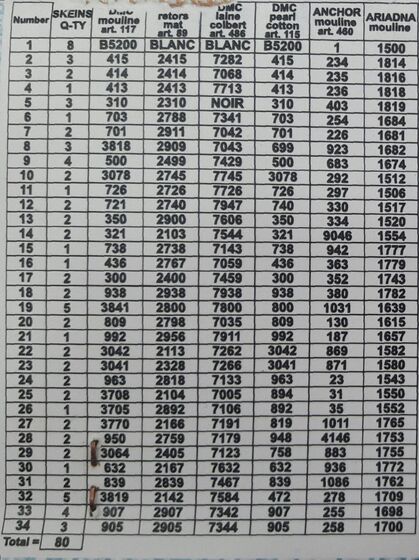 Number SKEINS Q-TY DMC mouline art. 117 retors mat art. 89 DMC laine colbert art. 486 DMC pearl cotton art. 115 ANCHOR mouline art. 460 ARIADNA mouline
1 8 B5200 BLANC BLANC B5200 1 1500
2 3 415 2415 7282 415 234 1814
3 2 414 2414 7068 414 235 1816
4 1 413 2413 7713 413 236 1818
5 3 310 2310 NOIR 310 403 1819
6 1 703 2788 7341 703 254 1684
7 2 701 2911 7042 701 226 1681
8 3 3818 2909 7043 699 923 1682
9 4 500 2499 7429 500 683 1674
10 2 3078 2745 7745 3078 292 1512
11 1 726 2726 7726 726 297 1506
12 2 721 2740 7947 740 330 1517
13 2 350 2900 7606 350 334 1520
14 2 321 2103 7544 321 9046 1554
15 1 738 2738 7143 738 942 1777
16 1 436 2767 7059 436 363 1779
17 2 300 2400 7459 300 352 1743
18 2 938 2938 7938 938 380 1782
19 5 3841 2800 7800 800 1031 1639
20 2 809 2798 7035 809 130 1615
21 1 992 2956 7911 992 187 1657
22 2 3042 2113 7262 3042 869 1582
23 2 3041 2328 7266 3041 871 1580
24 2 963 2818 7133 963 23 1543
25 2 3708 2104 7005 894 31 1550
26 1 3705 2892 7106 892 35 1552
27 2 3770 2166 7191 819 1011 1765
28 2 950 2759 7179 948 4146 1753
29 2 3064 2405 7123 758 883 1755
30 1 632 2167 7632 632 936 1772
31 2 839 2839 7467 839 1086 1762
32 5 3819 2142 7584 472 278 1709
33 4 907 2907 7342 907 255 1698
34 3 905 2905 7344 905 258 1700
Total = 80